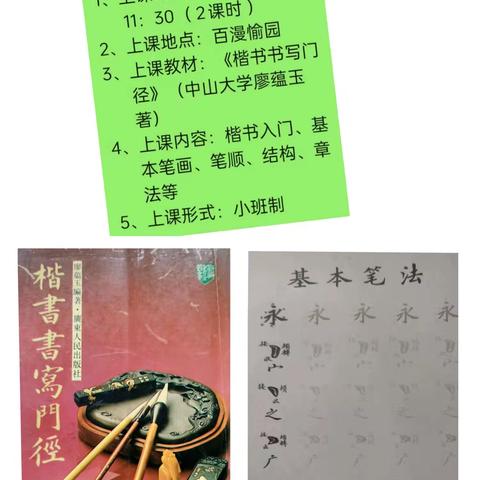 11：30（2课时）
2、上课地点：百漫愉园
3、上课教材：《楷书书写门
径》（中山大学廖蕴玉
著）
4、上课内容：楷书入门、基
本笔画、笔顺、结构、章
法等
5、上课形式：小班制
楷書書寫門徑
廖蘊玉編著·廣東人民出版社
基本笔法
永 永 永 永 永
之
广